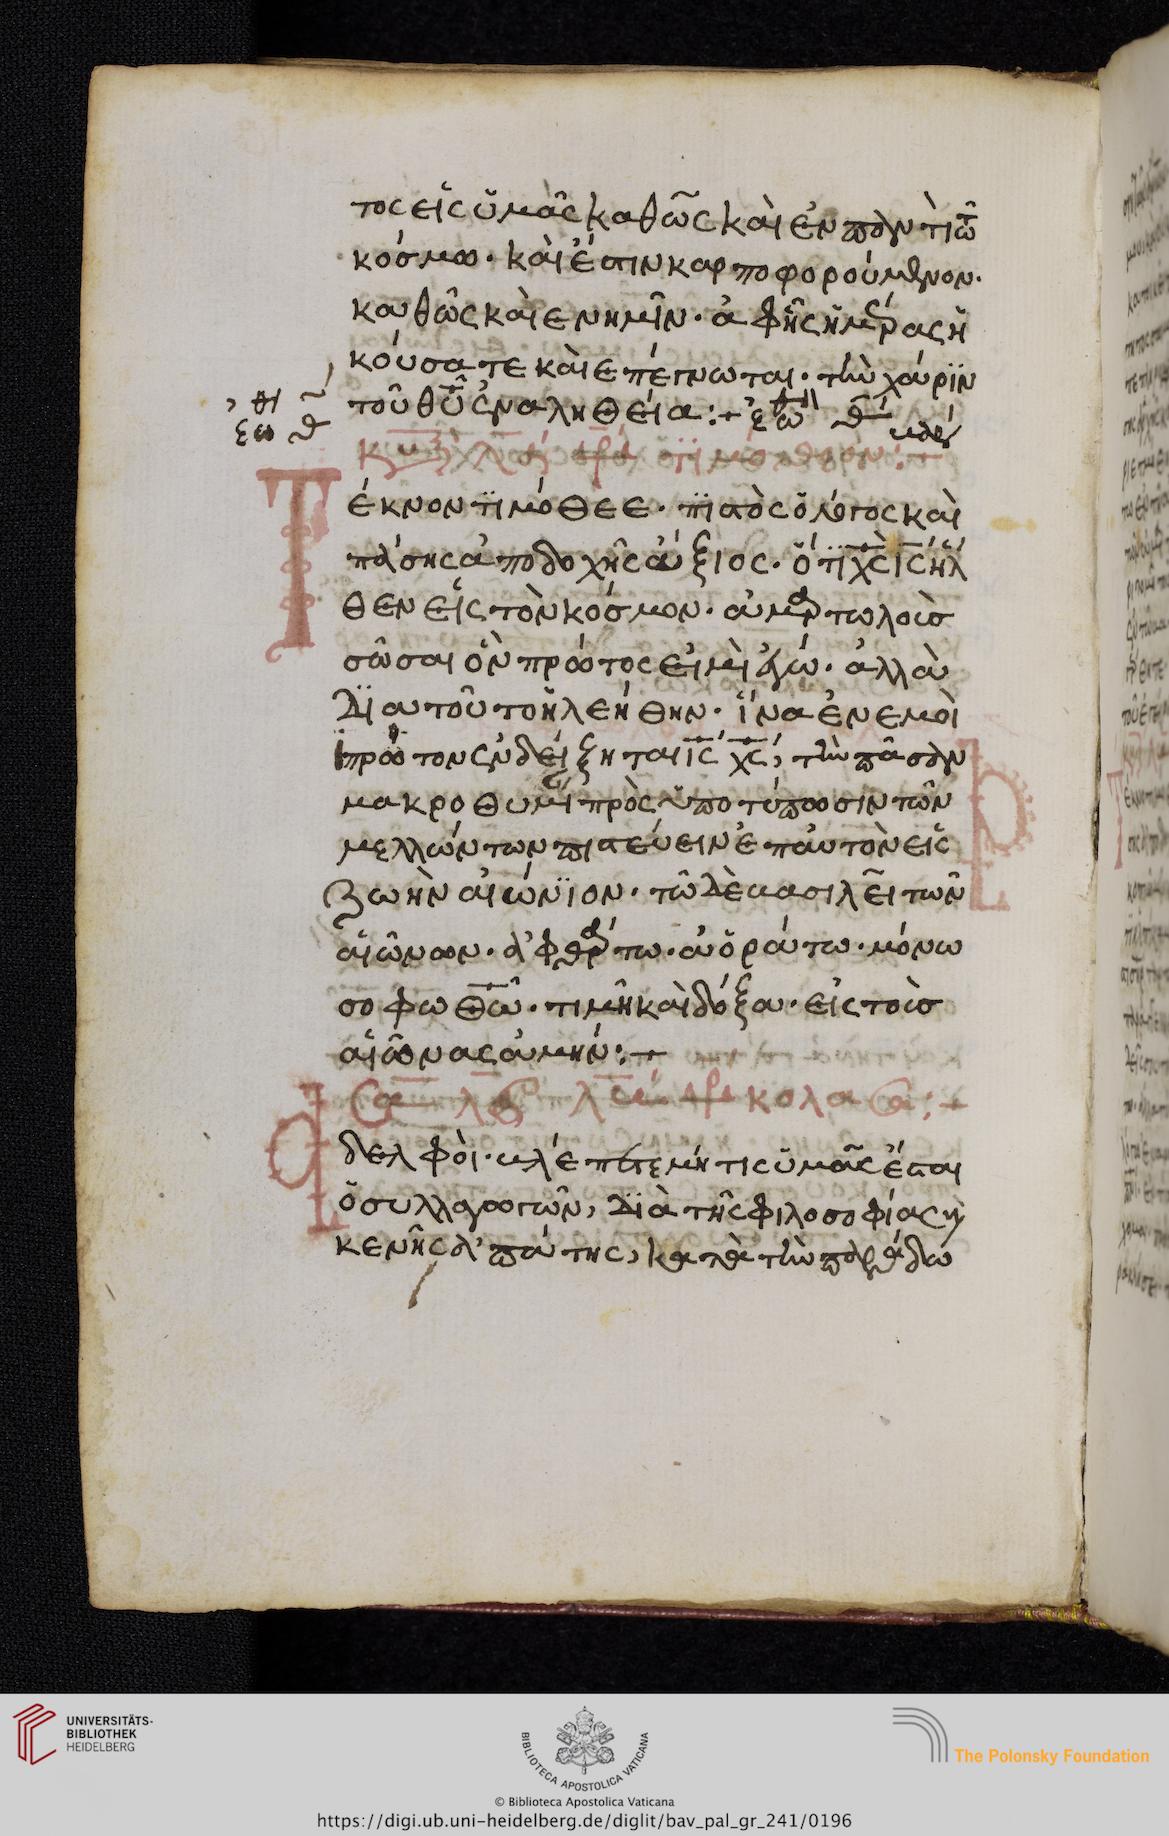 τος εἰς ὑμᾶς καθῶς καὶ ἐν παντὶ τῶ
κόσμω· καὶ ἔστιν καρποφορούμενον·
καθῶς καὶ ἐν ἡμῖν· ἀφ ἧς ἡμέρας ἠ
κούσατε καὶ ἐπέγνωται· τὴν χάριν
τοῦ θυ ἐν ἀληθεία:+
έκνον τϊμόθεε· πϊστὸς ὁ λόγος καὶ
πάσης ἀποδοχῆς ἄξιος· ὅτϊ χς ις ἦλ
θεν εἰς τὸν κόσμον· ἁμαρτωλοὺσ
σῶσαι ὃν πρῶτος εἰμὶ ἐγώ· ἀλλὰ
δϊα τοῦτο ἠλεήθην· ἵνα ἐν ἐμοὶ
πρῶτον ἐνδείξηται ις χς, τὴν πᾶσαν
μακροθυμί πρὸς ὑποτύπωσιν τῶν
μελλώντων πιστεύειν ἐπ αὐτὸν εἰς
ζωὴν αἰώνϊον· τῶ δὲ βασιλεῖ τῶν
αἰῶνων· ἀφθάρτω· ἀοράτω· μόνω
σοφω θῶ· τιμῆ καὶ δόξα· εἰς τοὺσ
αἰῶνας ἀμήν:+
κολασα:+
δελφοὶ· βλέπετε μή τις ὑμᾶς ἔσται
ὁ συλλαγωγῶν, δϊὰ τῆς φιλοσοφίας κὶ
κενῆς ἀπάτης, κατὰ τὴν παράδω
UNIVERSITÄTS-
BIBLIOTHEK
HEIDELBERG
BIBLIOTECA APOSTOLICA VATICANA
The Polonsky Foundation
© Biblioteca Apostolica Vaticana
https://digi.ub.uni-heidelberg.de/diglit/bav_pal_gr_241/0196